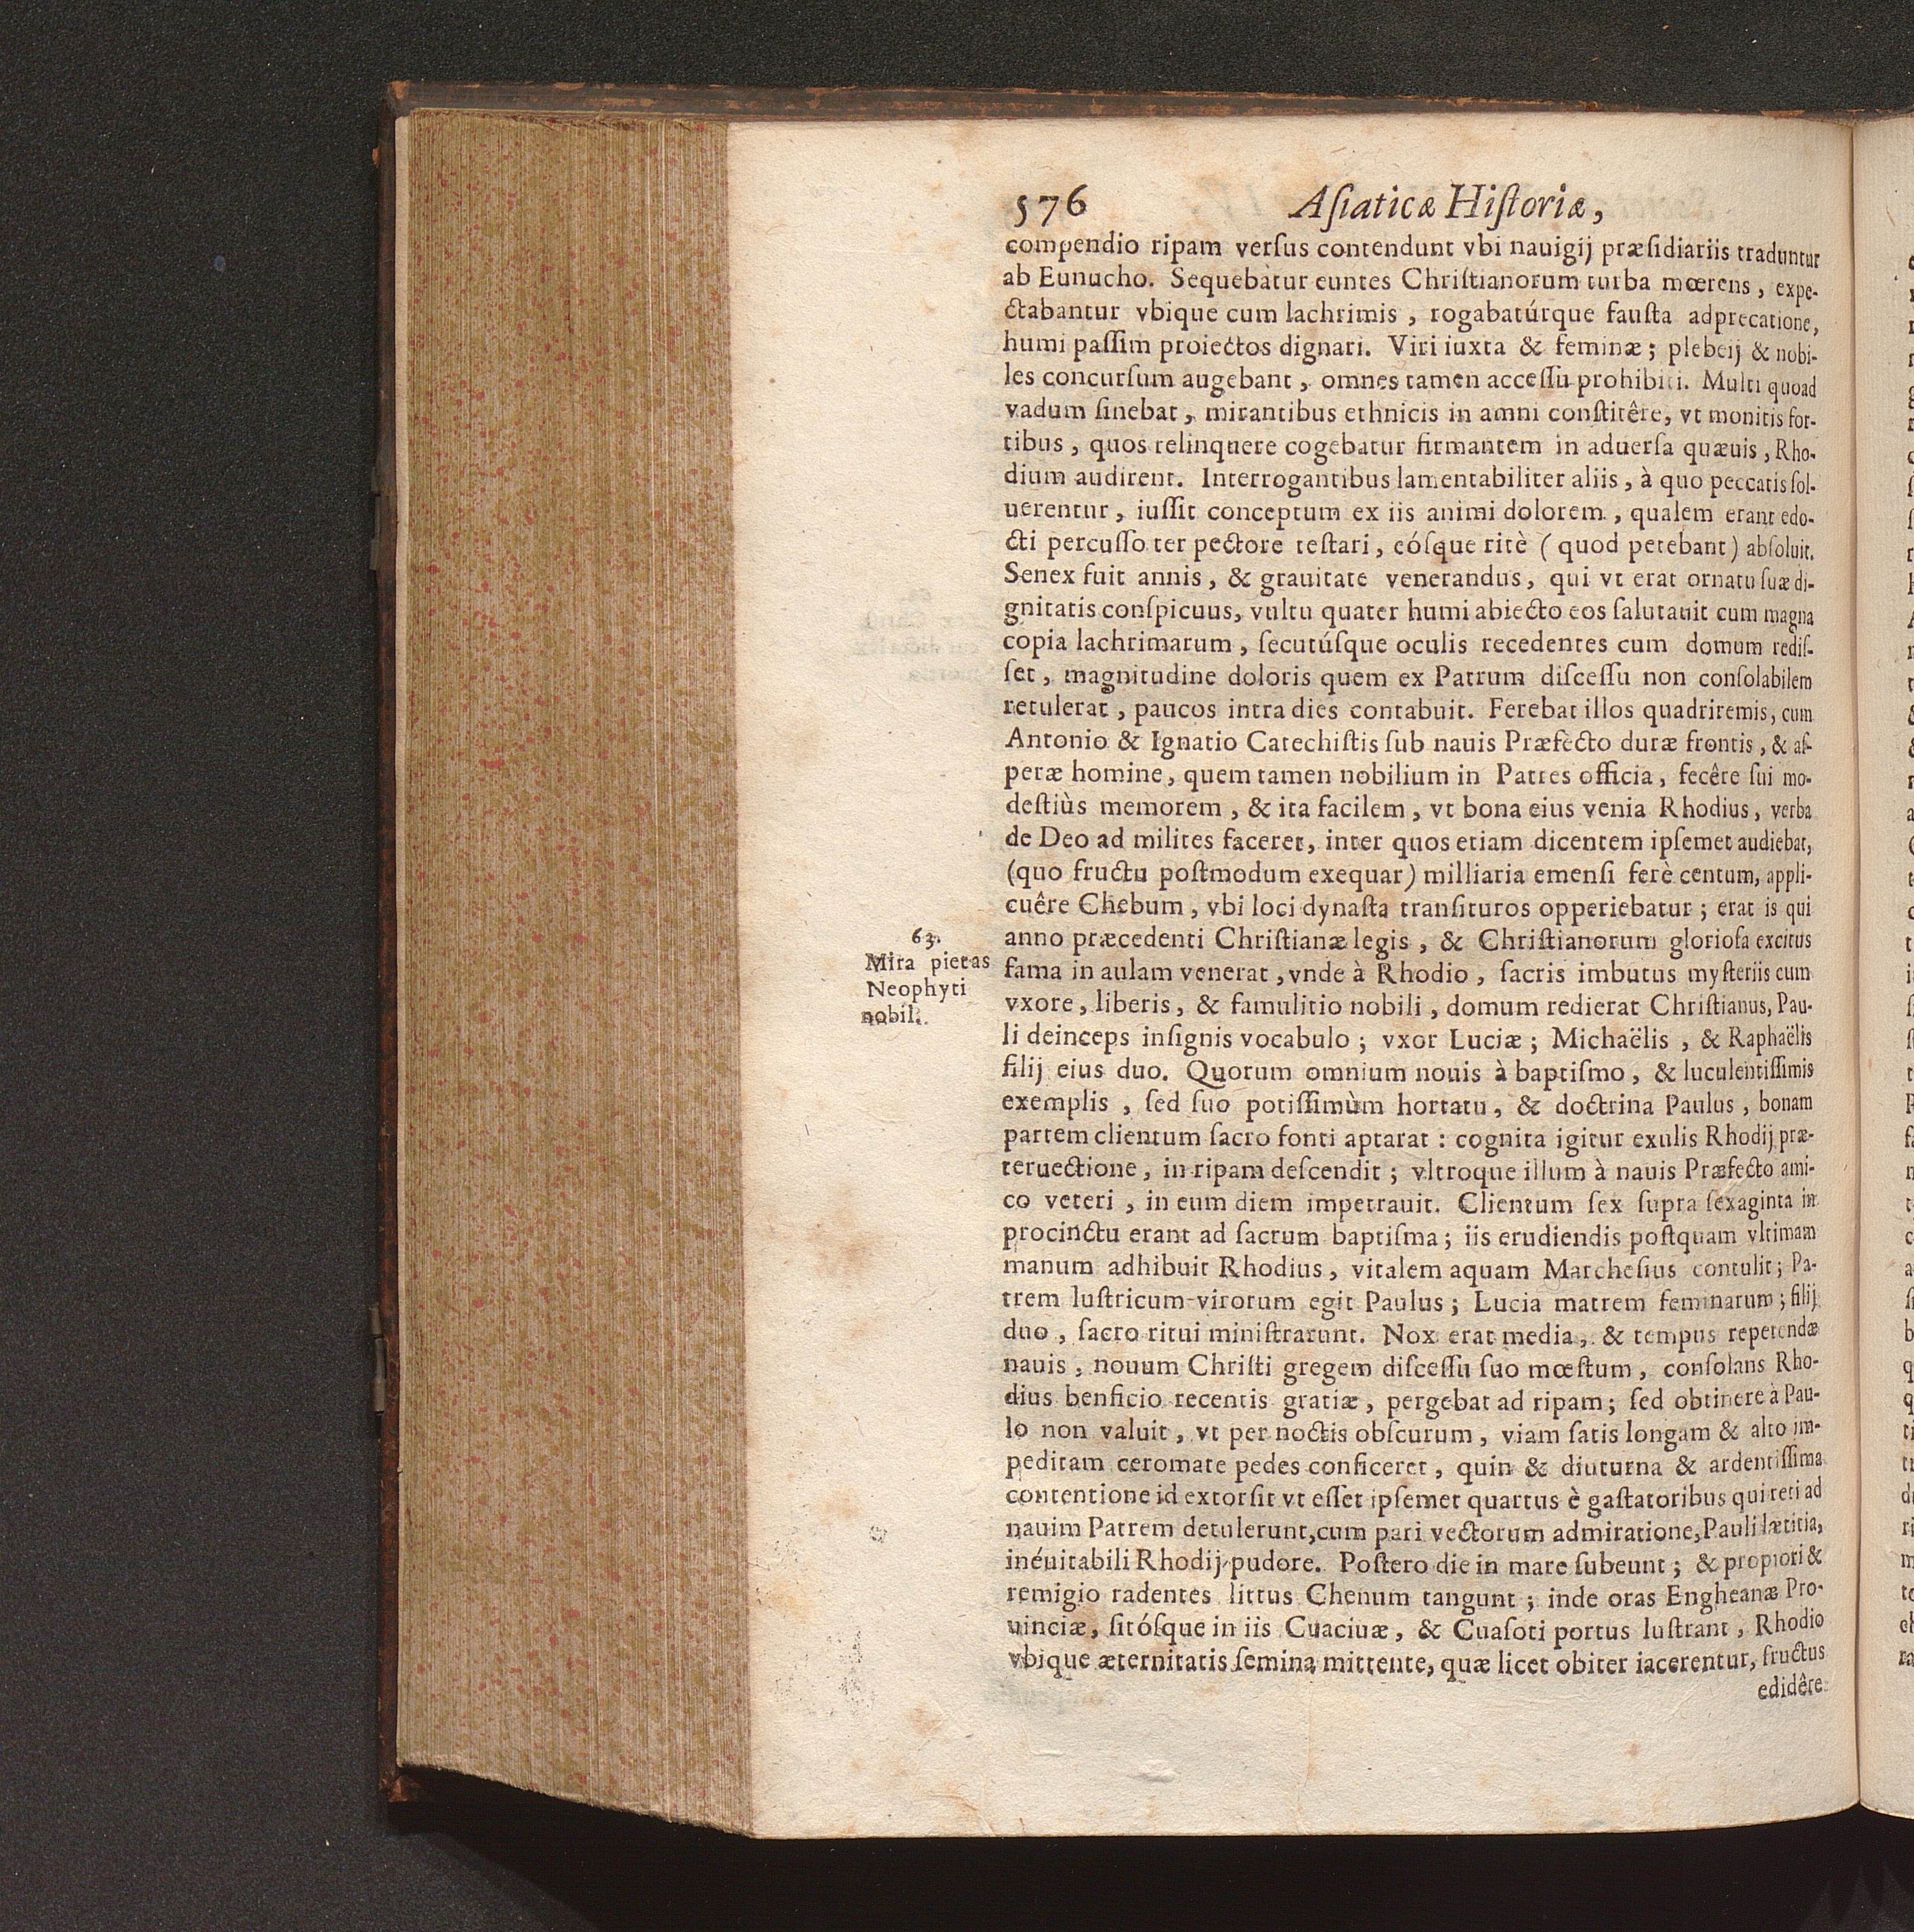 576 Aſiaticæ Hiſtoriæ,
compendio ripam verſus contendunt vbi nauigij præſidiariis traduntur
ab Eunucho. Sequebatur euntes Chriſtianorum turba mœrens, expe-
ctabantur vbique cum lachrimis, rogabatúrque fauſta adprecatione,
humi paſſim proiectos dignari. Viri iuxta & feminæ; plebeij & nobi-
les concurſum augebant, omnes tamen acceſſu prohibiti. Multi quoad
vadum ſinebat, mirantibus ethnicis in amni conſtitêre, vt monitis for-
tibus, quos relinquere cogebatur firmantem in aduerſa quæuis, Rho-
dium audirent. Interrogantibus lamentabiliter aliis, à quo peccatis ſol-
uerentur, iuſſit conceptum ex iis animi dolorem, qualem erant edo-
cti percuſſo ter pectore teſtari, eóſque ritè (quod petebant) abſoluit.
Senex fuit annis, & grauitate venerandus, qui vt erat ornatu ſuæ di-
gnitatis conſpicuus, vultu quater humi abiecto eos ſalutauit cum magna
copia lachrimarum, ſecutúſque oculis recedentes cum domum rediſ-
ſet, magnitudine doloris quem ex Patrum diſceſſu non conſolabilem
retulerat, paucos intra dies contabuit. Ferebat illos quadriremis, cum
Antonio & Ignatio Catechiſtis ſub nauis Præfecto duræ frontis, & aſ-
peræ homine, quem tamen nobilium in Patres officia, fecêre ſui mo-
deſtiùs memorem, & ita facilem, vt bona eius venia Rhodius, verba
de Deo ad milites faceret, inter quos etiam dicentem ipſemet audiebat,
(quo fructu poſtmodum exequar) milliaria emenſi ferè centum, appli-
cuêre Chebum, vbi loci dynaſta tranſituros opperiebatur; erat is qui
anno præcedenti Chriſtianæ legis, & Chriſtianorum glorioſa excitus
fama in aulam venerat, vnde à Rhodio, ſacris imbutus myſteriis cum
vxore, liberis, & famulitio nobili, domum redierat Chriſtianus, Pau-
li deinceps inſignis vocabulo; vxor Luciæ; Michaëlis, & Raphaëlis
filij eius duo. Quorum omnium nouis à baptiſmo, & luculentiſſimis
exemplis, ſed ſuo potiſſimùm hortatu, & doctrina Paulus, bonam
partem clientum ſacro fonti aptarat: cognita igitur exulis Rhodij præ-
teruectione, in ripam deſcendit; vltroque illum à nauis Præfecto ami-
co veteri, in eum diem impetrauit. Clientum ſex ſupra ſexaginta in
procinctu erant ad ſacrum baptiſma; iis erudiendis poſtquam vltimam
manum adhibuit Rhodius, vitalem aquam Marcheſius contulit; Pa-
trem luſtricum virorum egit Paulus; Lucia matrem feminarum; filij
duo, ſacro ritui miniſtrarunt. Nox erat media, & tempus repetendæ
nauis, nouum Chriſti gregem diſceſſu ſuo mœſtum, conſolans Rho-
dius benficio recentis gratiæ, pergebat ad ripam; ſed obtinere à Pau-
lo non valuit, vt per noctis obſcurum, viam ſatis longam & alto im-
peditam ceromate pedes conficeret, quin & diuturna & ardentiſſima
contentione id extorſit vt eſſet ipſemet quartus è gaſtatoribus qui reti ad
nauim Patrem detulerunt, cum pari vectorum admiratione, Pauli lætitia,
inéuitabili Rhodij pudore. Poſtero die in mare ſubeunt; & propiori &
remigio radentes littus Chenum tangunt; inde oras Engheanæ Pro-
uinciæ, ſitóſque in iis Cuaciuæ, & Cuaſoti portus luſtrant, Rhodio
vbique æternitatis ſemina mittente, quæ licet obiter iacerentur, fructus
edidêre
63.
Mira pietas
Neophyti
nobil.